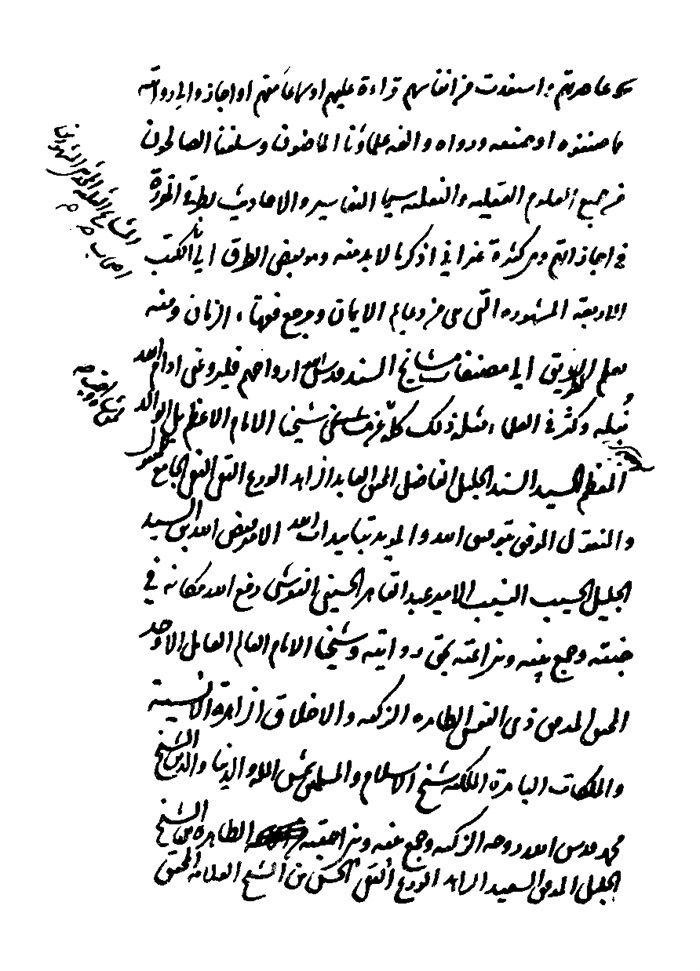 عاصرتهم واستفدت من انفاسهم قراءة عليهم او سماعا منهم او اجازة والى رواية
ما صنفوه او جمعوه ورواه والفه علماؤنا الماضون وسلفنا الصالحون
من جميع العلوم العقليه والنقليه سيما التفاسير والاحاديث بطرق المقررة
في اجازاتهم وهي كثيرة غير اني اذكر ما لابد منه وهو بعض الطرق الى الكتب
الاربعة المشهوره التي هي مرجع فقهاء الزمان ومنه
يعلم الطريق الى مصنفات مشايخ السند قدس الله ارواحهم فليرو عني ادام الله
فضله وكثر في العلماء مثله ذلك كله عن شيخنا الامام الاعظم بل الوالد
المعظم السيد السند الجليل الفاضل المحقق العابد الزاهد الورع التقي النقي الجامع
الموفق بتوفيق الله والمويد بتاييدات الله الامير فيض الله بن السيد
الجليل الحسيب النسيب الامير عبد القاهر الحسيني التفرشي رفع الله مكانه في
جنته وجمع بينه وبين ائمته بحق روايته وشيخنا الامام العالم العامل الاوحد
المحقق المدقق ذي النفس الطاهره الزكيه والاخلاق الزاهرة الانسية
والملكات الباهرة الملكيه شيخ الاسلام والمسلمين شمس المله والدنيا والدين الشيخ
محمد قدس الله روحه الزكيه وجمع بينه وبين ائمته الطاهره بن الشيخ
الجليل المدقق السعيد الزاهد الورع التقي الحسن بن الشيخ العلامه المحقق
المشايخ
اصحاب